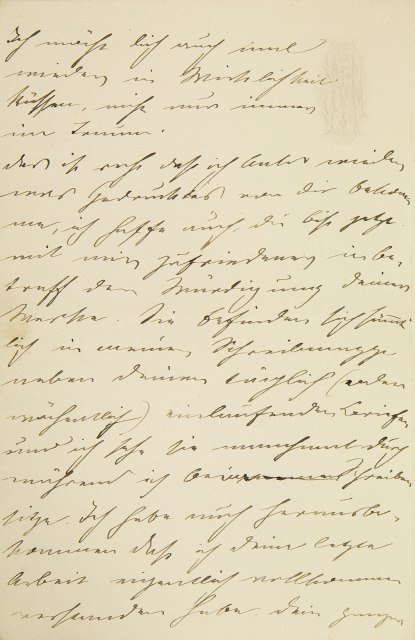 Ich möchte dich auch mal
wieder in Wirklichkeit
küssen, nicht nur immer
im Traum.
das ist recht daß ich bald wieder
was Gedrucktes von dir bekom
me, ich hoffe auch du bist jetzt
mit mir zufriedener in be-
treff der Würdigung deiner
Werke. Sie befinden sich sämmt
lich in meiner Schreibmappe
neben deinen täglich (oder
wöchentlich) einlaufenden Briefen
und ich sehe sie manchmal durch
während ich beim Schreiben
sitze. Ich habe auch herausbe-
kommen daß ich deine letzte
Arbeit eigentlich vollkommen
verstanden habe, dein ganzer